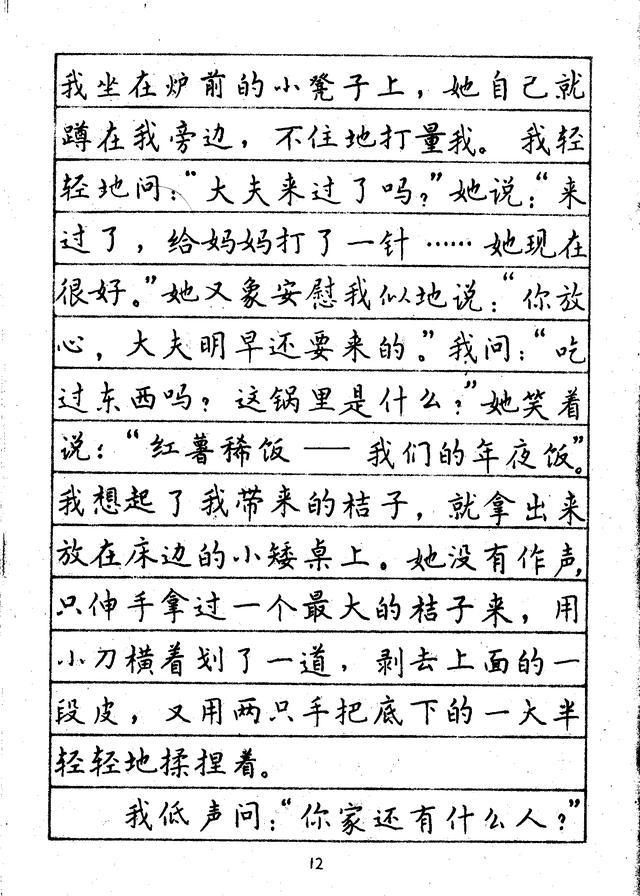 我坐在炉前的小凳子上，她自己就
蹲在我旁边，不住地打量我。我轻
轻地问：“大夫来过了吗？”她说：“来
过了，给妈妈打了一针……她现在
很好。”她又象安慰我似地说：“你放
心，大夫明早还要来的。”我问：“吃
过东西吗？这锅里是什么？”她笑着
说：“红薯稀饭——我们的年夜饭”。
我想起了我带来的桔子，就拿出来
放在床边的小矮桌上。她没有作声，
只伸手拿过一个最大的桔子来，用
小刀横着划了一道，剥去上面的一
段皮，又用两只手把底下的一大半
轻轻地揉捏着。
我低声问：“你家还有什么人？”
12